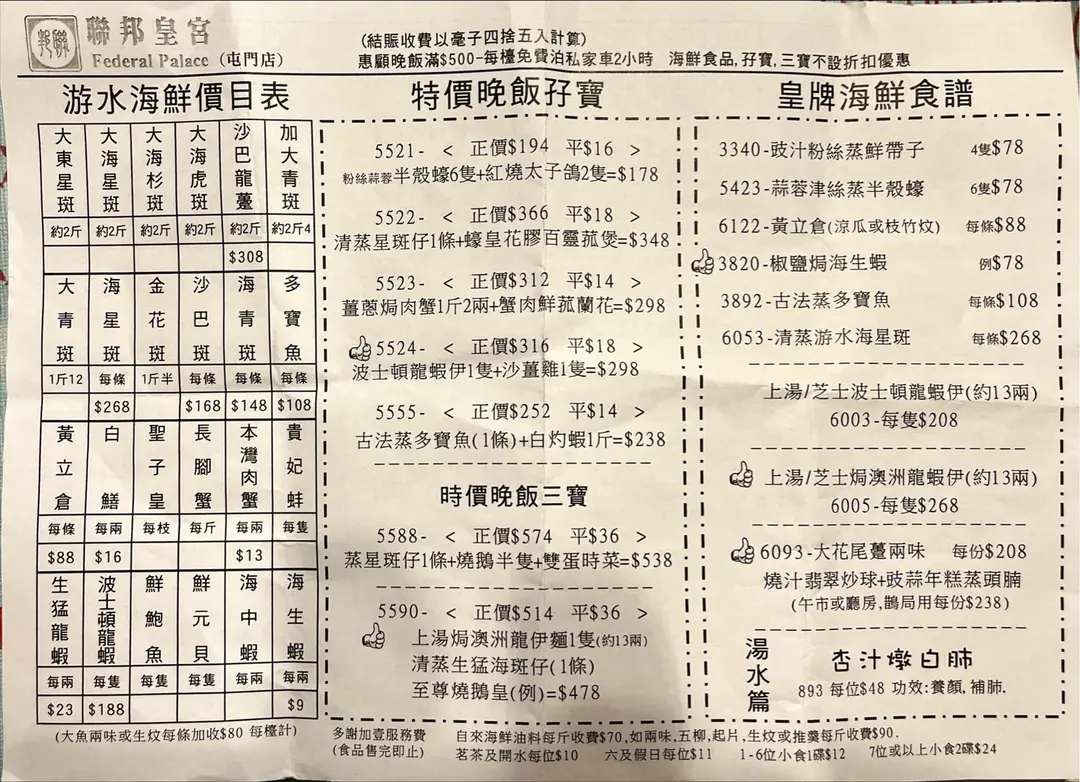 聯邦 聯邦皇宮
Federal Palace (屯門店)
(結賬收費以毫子四捨五入計算)
惠顧晚飯滿$500-每檯免費泊私家車2小時 海鮮食品,孖寶,三寶不設折扣優惠
游水海鮮價目表
大東星斑 大海星斑 大海杉斑 大海虎斑 沙巴龍躉 加大青斑
約2斤 約2斤 約2斤 約2斤 約2斤 約2斤4
$308
大青斑 海星斑 金花斑 沙巴斑 海青斑 多寶魚
1斤12 每條 1斤半 每條 每條 每條
$268 $168 $148 $108
黃立倉 白鱔 聖子皇 長腳蟹 本灣肉蟹 貴妃蚌
每條 每兩 每枝 每斤 每兩 每隻
$88 $16 $13
生猛龍蝦 波士頓龍蝦 鮮鮑魚 鮮元貝 海中蝦 海生蝦
每兩 每隻 每隻 每隻 每兩 每兩
$23 $188 $9
(大魚兩味或生炆每條加收$80 每檯計)
特價晚飯孖寶
5521- < 正價$194 平$16 >
粉絲蒜蓉半殼蠔6隻+紅燒太子鴿2隻=$178
5522- < 正價$366 平$18 >
清蒸星斑仔1條+蠔皇花膠百靈菰煲=$348
5523- < 正價$312 平$14 >
薑蔥焗肉蟹1斤2兩+蟹肉鮮菰蘭花=$298
5524- < 正價$316 平$18 >
波士頓龍蝦伊1隻+沙薑雞1隻=$298
5555- < 正價$252 平$14 >
古法蒸多寶魚(1條)+白灼蝦1斤=$238
時價晚飯三寶
5588- < 正價$574 平$36 >
蒸星斑仔1條+燒鵝半隻+雙蛋時菜=$538
5590- < 正價$514 平$36 >
上湯焗澳洲龍伊麵1隻(約13兩)
清蒸生猛海斑仔(1條)
至尊燒鵝皇(例)=$478
皇牌海鮮食譜
3340-豉汁粉絲蒸鮮帶子 4隻$78
5423-蒜蓉津絲蒸半殼蠔 6隻$78
6122-黃立倉(涼瓜或枝竹炆) 每條$88
3820-椒鹽焗海生蝦 例$78
3892-古法蒸多寶魚 每條$108
6053-清蒸游水海星斑 每條$268
上湯/芝士波士頓龍蝦伊(約13兩)
6003-每隻$208
上湯/芝士焗澳洲龍蝦伊(約13兩)
6005-每隻$268
6093-大花尾躉兩味 每份$208
燒汁翡翠炒球+豉蒜年糕蒸頭腩
(午市或廳房,鵲局用每份$238)
湯水篇
杏汁燉白肺
893 每位$48 功效:養顏,補肺.
多謝加壹服務費
(食品售完即止)
自來海鮮油料每斤收費$70,如兩味,五柳,起片,生炆或推羹每斤收費$90.
茗茶及開水每位$10 六及假日每位$11 1-6位小食1碟$12 7位或以上小食2碟$24